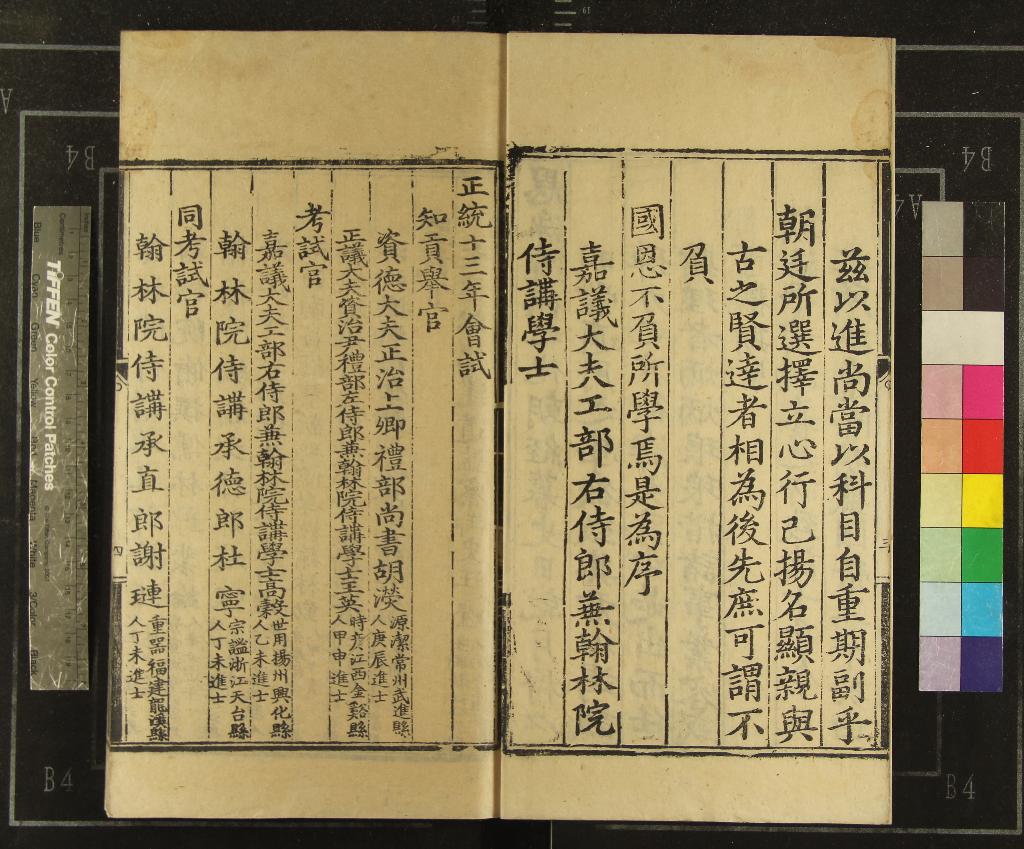 茲以進尚當以科目自重期副乎
朝廷所選擇立心行已揚名顯親與
古之賢達者相為後先庶可謂不
負
國恩不負所學焉是為序
嘉議大夫工部右侍郎兼翰林院
侍講學士
三
正統十三年會試
知貢舉官
資德大夫正治上卿禮部尚書胡濙 源潔常州武進縣人庚辰進士
正議大夫資治尹禮部左侍郎兼翰林院侍講學士王英 時彦江西金谿縣人甲申進士
考試官
嘉議大夫工部右侍郎兼翰林院侍講學士高穀 世用揚州興化縣人乙未進士
翰林院侍講承德郎杜寧 宗謐浙江天台縣人丁未進士
同考試官
翰林院侍講承直郎謝璉 重器福建龍溪縣人丁未進士
四
TIFFEN Color Control Patches
B4
B4
B4
B4
A